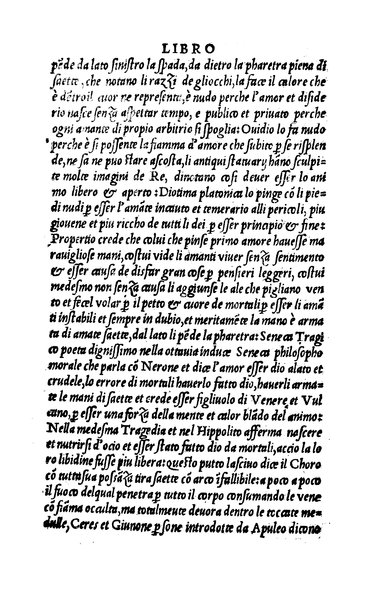 LIBRO
pẽde da lato sinistro la spada, da dietro la pharetra piena di
saette, che notano li razzi de gliocchi, la face il calore che
è dẽtro il cuor ne represente, è nudo perche l'amor et diside
rio nasce senza aspettar tempo, e publico et priuato perche
ogni amante di propio arbitrio si spoglia: Ouidio lo fa nudo
perche è si possente la fiamma d'amore che subito ꝑ se risplen
de, ne sa ne puo stare ascosta, li antiqui statuary hãno sculpi
te molte imagini de Re, dinotano cosi deuer esser lo ani
mo libero & aperto: Diotima platonica lo pinge cõ li pie
di nudi ꝑ esser l'amãte incauto et temerario alli pericoli, piu
giouene et piu riccho de tutti li dei ꝑ esser principio & fine:
Propertio crede che colui che pinse primo amore hauesse ma
rauigliose mani, costui vide li amanti viuer senza sentimento
& esser causa de disfar gran cose ꝑ pensieri leggeri, costui
medesmo non senza causa li aggiunse le ale che pigliano ven
to et fecel volar ꝑ il petto & cuore de mortali ꝑ esser li amã
ti instabili et sempre in dubio, et meritamẽte la mano è arma
ta di amate saette, dal lato li pẽde la pharetra: Seneca Tragi
co poeta dignissimo nella ottauia induce Seneca philosopho
morale che parla cõ Nerone et dice l'amor esser dio alato et
crudele, lo errore di mortali hauerlo fatto dio, hauerli arma
te le mani di saette et crede esser figliuolo di Venere, et Vul
cano, ꝑ esser una forza della mente et calor blãdo del animo:
Nella medesma Tragedia et nel Hippolito afferma nascere
et nutrirsi d'ocio et esser stato fatto dio da mortali, accio la lo
ro libidine fusse piu libera: questo putto lasciuo dice il Choro
cõ tutta sua possãza tira saette cõ arco ĩfallibile: a poco a poco
il fuoco delqual penetra ꝑ tutto il corpo consumando le vene
cõ fiãma occulta, ma totalmente deuora dentro le toccate me
dulle, Ceres et Giunone ꝑsone introdotte da Apuleo dicono